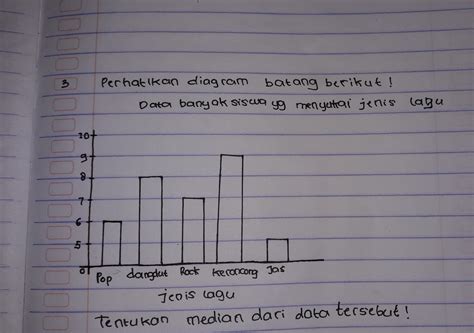 3 Perhatikan diagram batang berikut !
Data banyak siswa yg menyukai jenis lagu
10
9
8
7
6
5
0
Pop dangdut Rock keroncong Jas
jenis lagu
Tentukan median dari data tersebut !